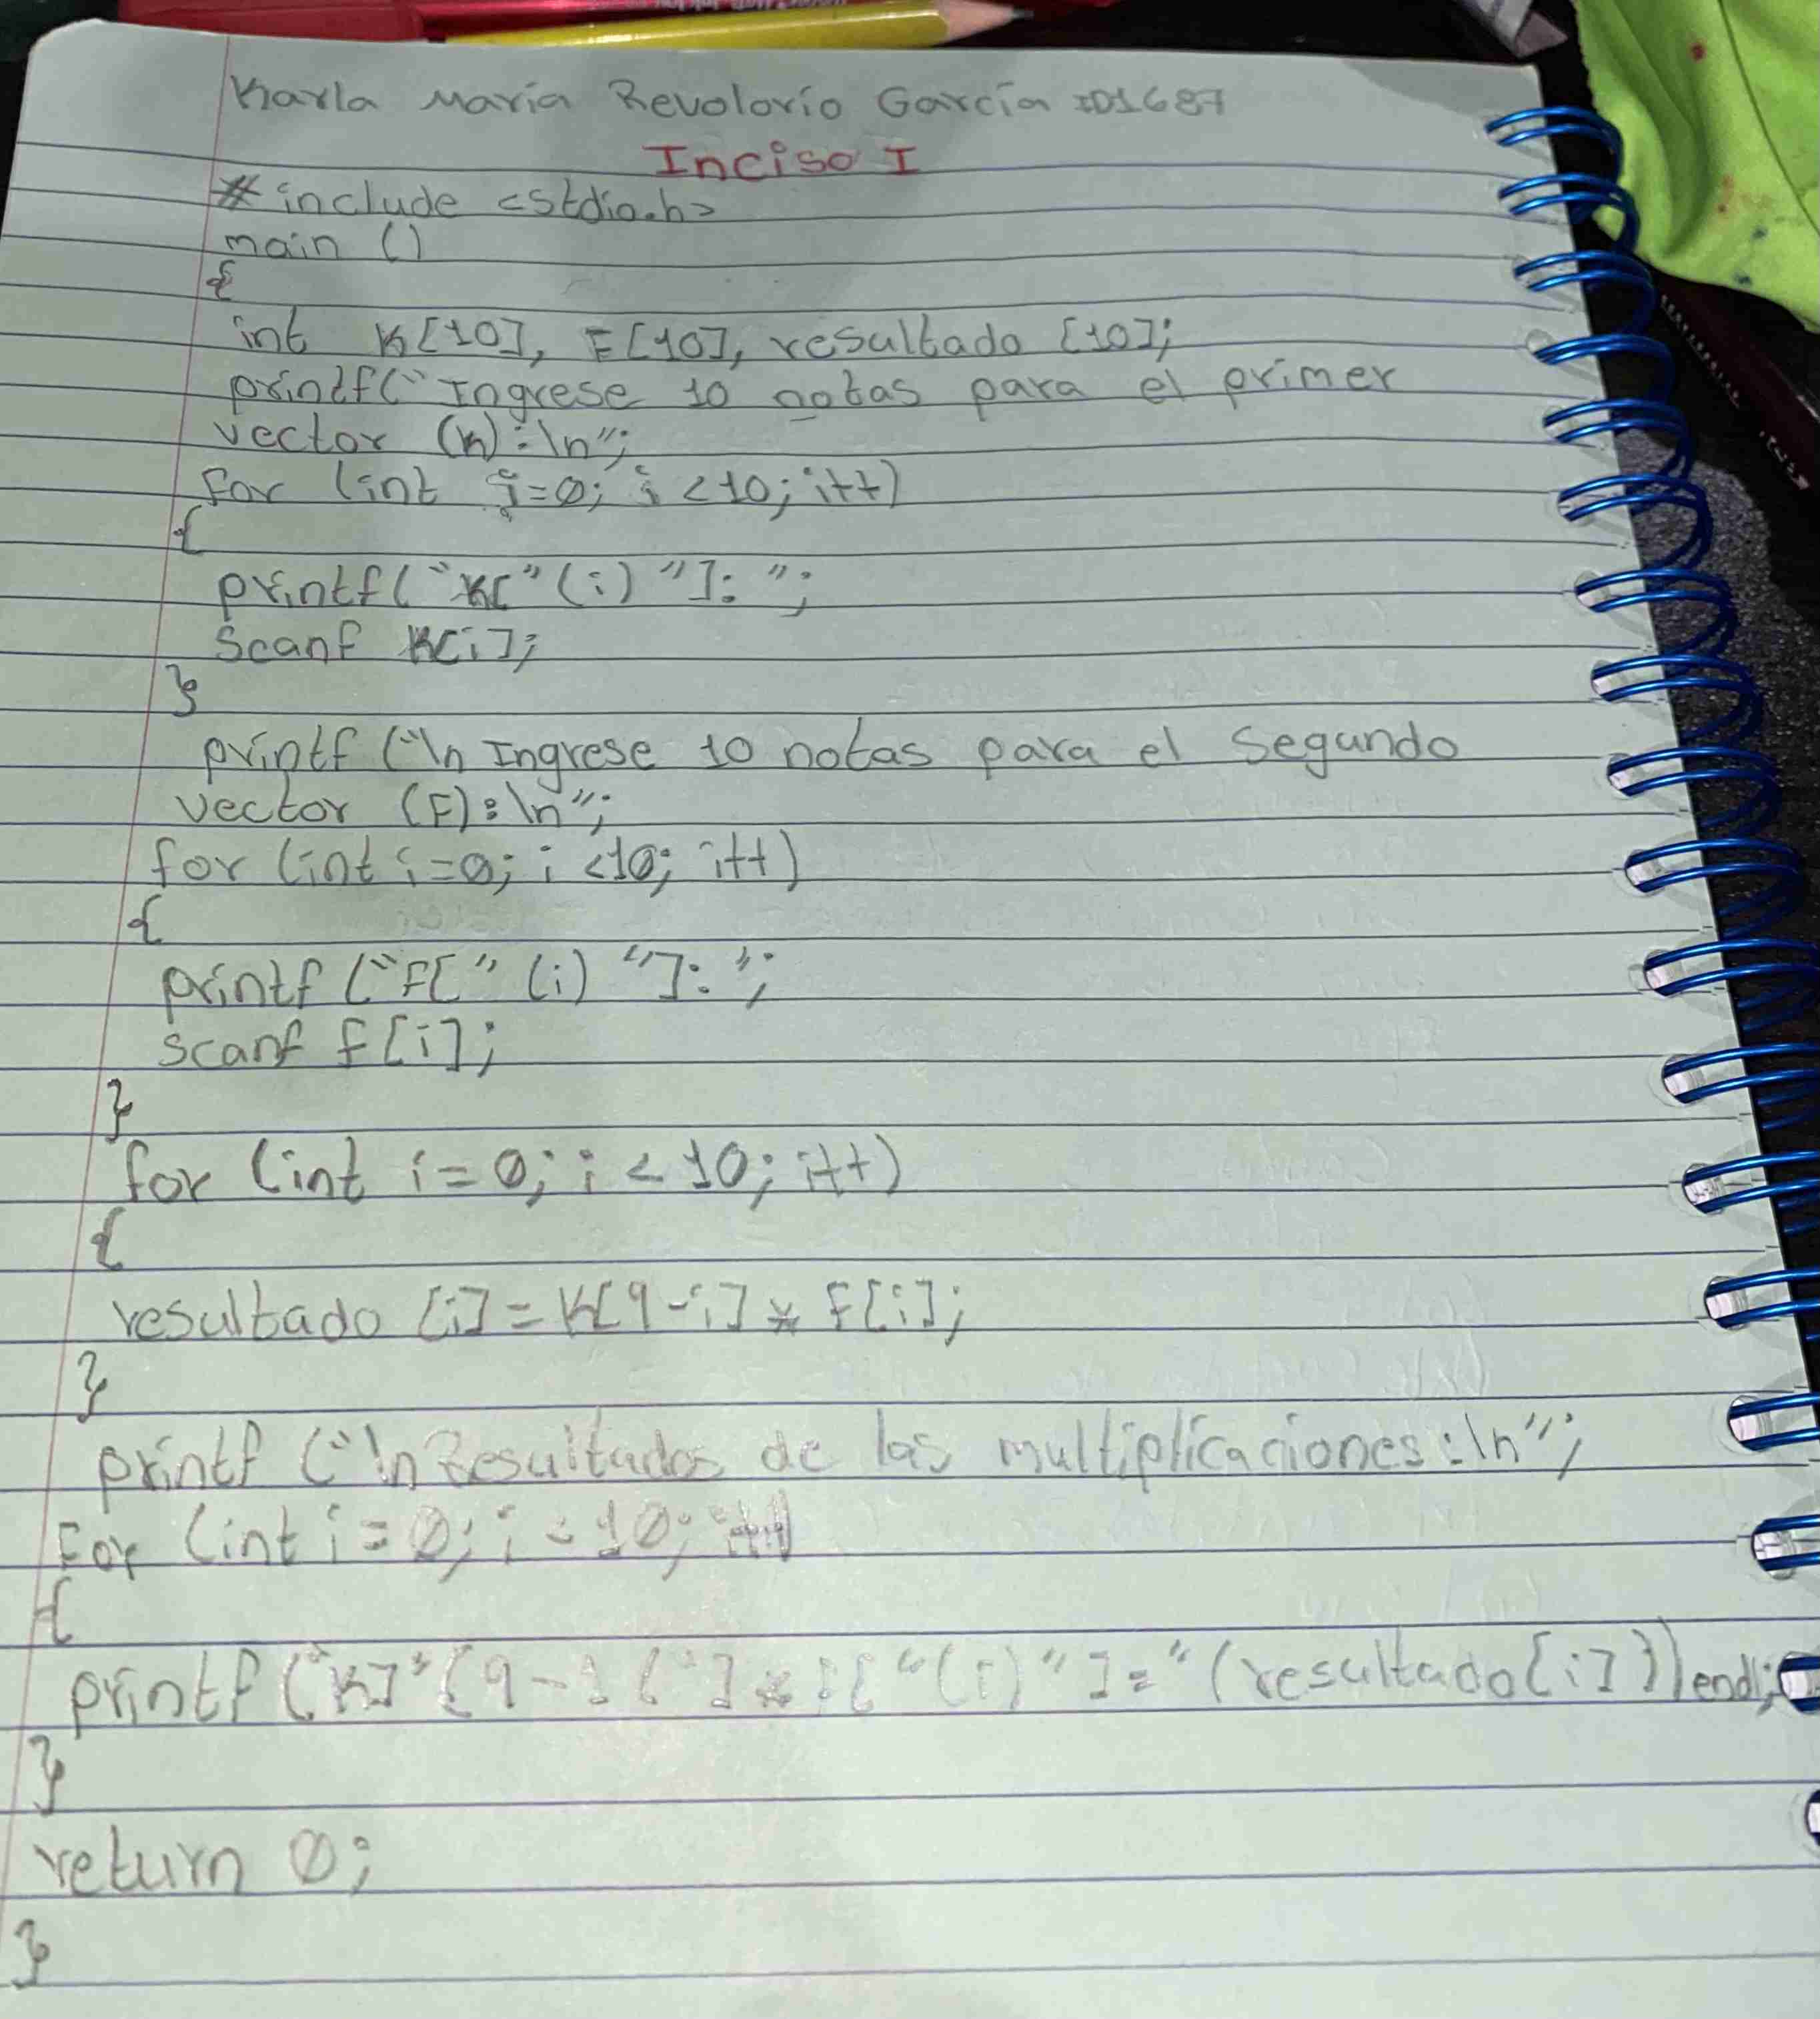 Karla María Revolorio García ID1687
Inciso I
#include <stdio.h>
main ()
{
int K[10], F[10], resultado [10];
printf("Ingrese 10 notas para el primer
vector (K):\n";
for (int i=0; i <10; i++)
{
printf("K["(i) "]: ";
Scanf K[i];
}
printf ("\n Ingrese 10 notas para el Segundo
vector (F):\n";
for (int i=0; i <10; i++)
{
printf ("F[" (i) "]: ";
scanf f[i];
}
for (int i=0; i < 10; i++)
{
resultado [i] = K[9-i] * F[i];
}
printf ("\n Resultados de las multiplicaciones:\n";
For (int i=0; i < 10; i++)
{
printf ("K]" "(i) "]=" (resultado[i]))endl;
}
return 0;
}